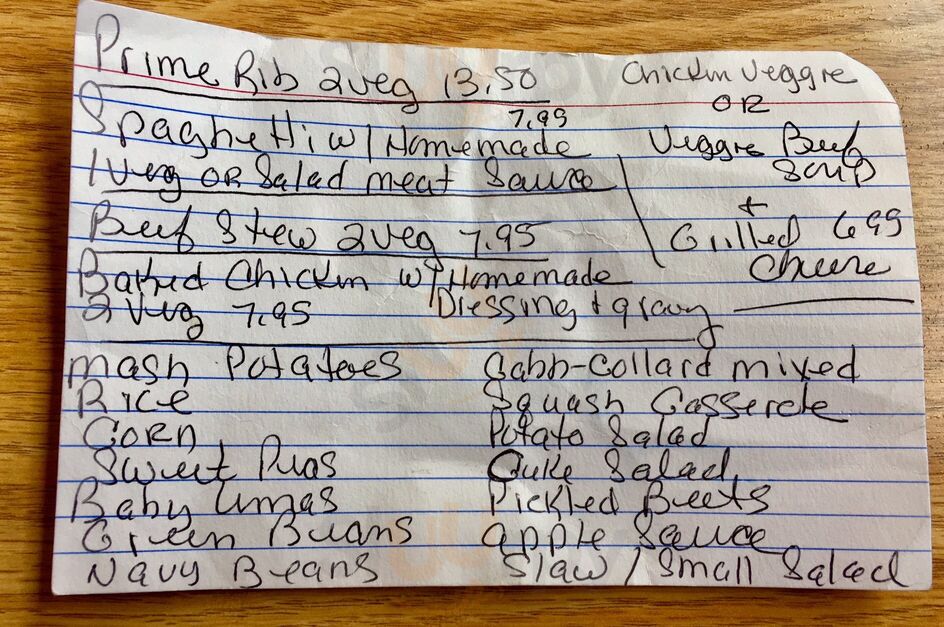 Prime Rib 2 veg 13.50
7.95
Spaghetti w/ Homemade
1 Veg OR Salad meat Sauce
Beef Stew 2 veg 7.95
Baked Chicken w/ Homemade
2 Veg 7.95 Dressing + gravy
Chicken Veggie
OR
Veggie Beef
Soup
+
Grilled 6.99
Cheese
mash Potatoes
Rice
Corn
Sweet Peas
Baby Limas
Green Beans
Navy Beans
Cabb-Collard mixed
Squash Casserole
Potato Salad
Cuke Salad
Pickled Beets
Apple Sauce
Slaw / Small Salad